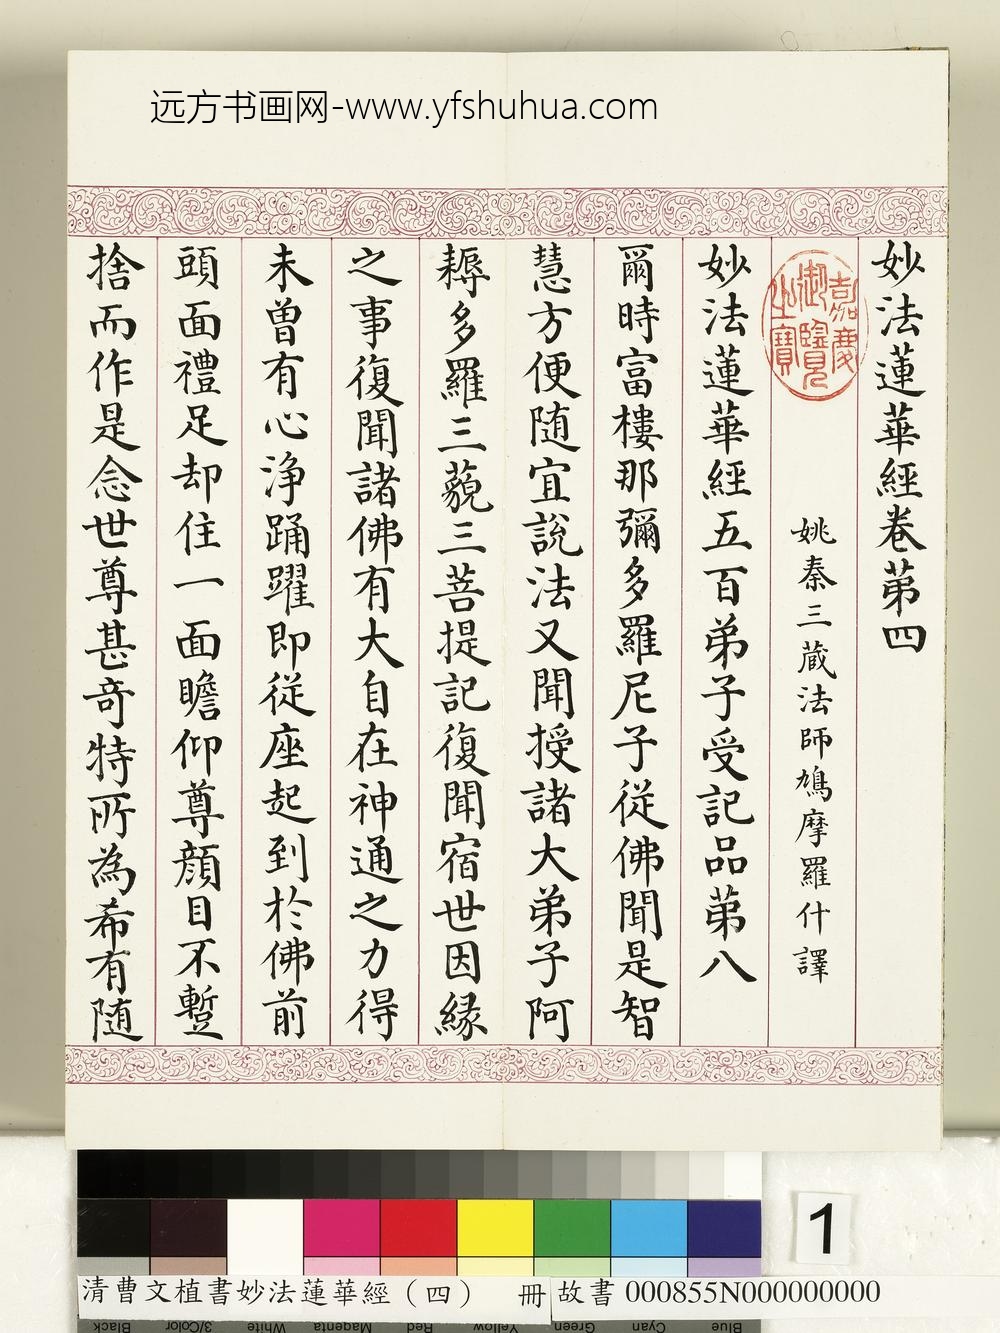 远方书画网-www.yfshuhua.com
妙法蓮華經卷苐四
嘉慶御覽之寶
姚秦三藏法師鳩摩羅什譯
妙法蓮華經五百弟子受記品苐八
爾時富樓那彌多羅尼子從佛聞是智
慧方便随宜說法又聞授諸大弟子阿
耨多羅三藐三菩提記復聞宿世因緣
之事復聞諸佛有大自在神通之力得
未曾有心淨踊躍即從座起到於佛前
頭面禮足却住一面瞻仰尊顔目不蹔
捨而作是念世尊甚竒特所為希有随
1
清曹文植書妙法蓮華經（四） 冊
故書 000855N000000000
Black 3/Color White Magenta Red Yellow Green Cyan Blue